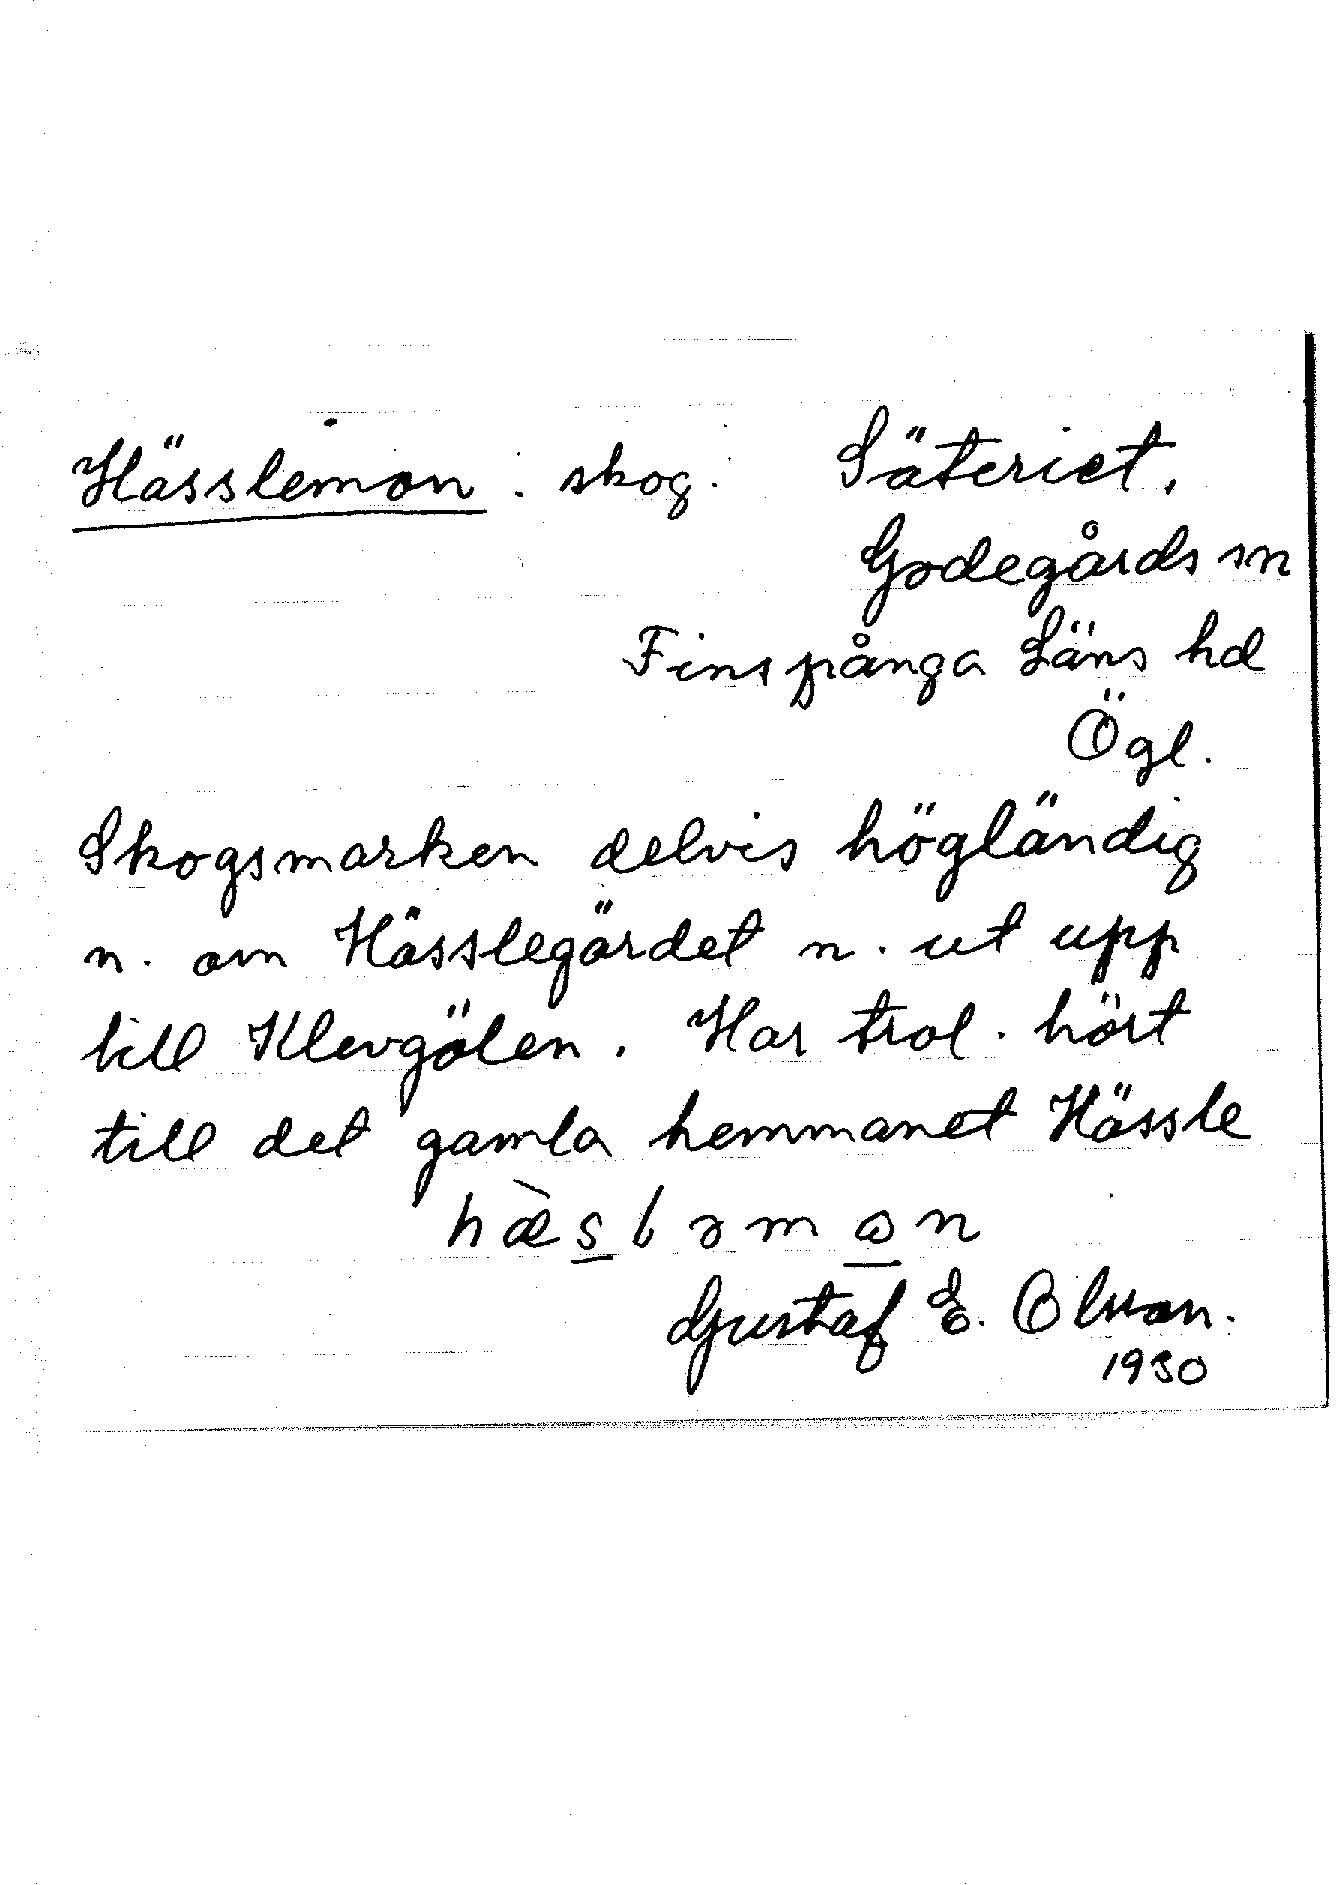 Hässlemon : skog. Säteriet,
Godegårds sn
Finspånga Läns hd
Ögl.
Skogsmarken delvis högländig
n. om Hässlegärdet n. ut upp
till Klevgölen. Har trol. hört
till det gamla hemmanet Hässle
hæ̀sləmɷn
Gustaf E. Olsson.
1930